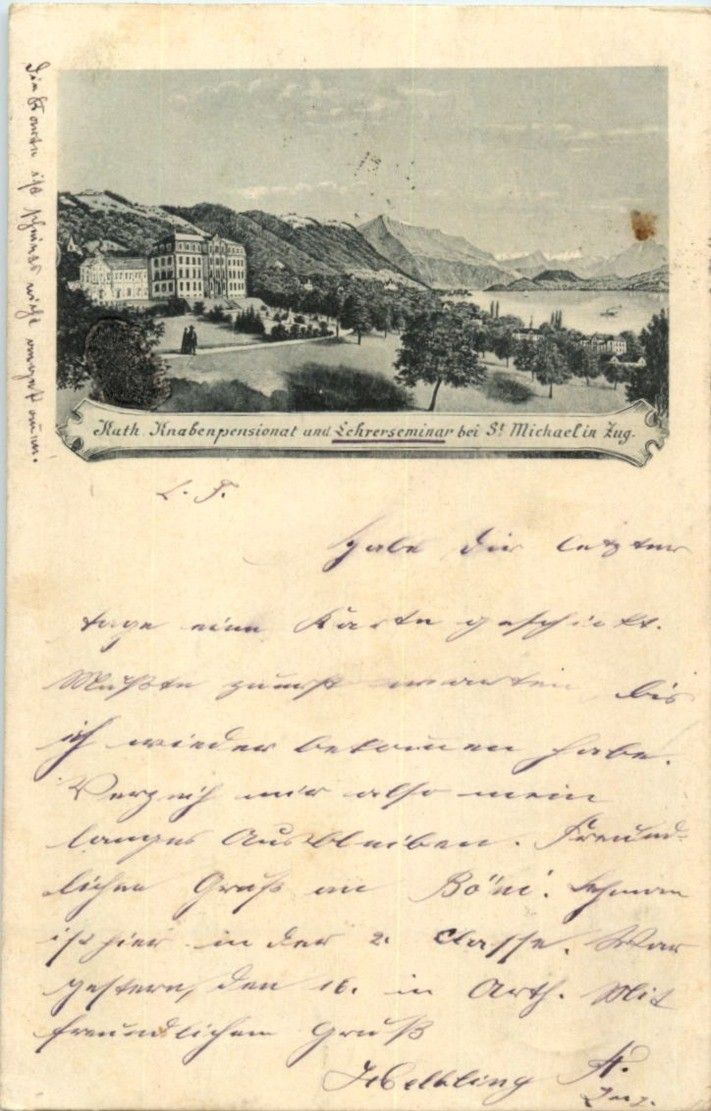 Kath Knabenpensionat und Lehrerseminar bei St Michael in Zug.
L. F.
Habe dir letzter
tage eine Karte geschickt.
Mußte zuerst warten, bis
ich wieder bekommen habe.
Verzeih mir also mein
langes Ausbleiben. Freund-
lichen Gruß an Böni. Lehmann
ist hier in der 2. Classe. War
gestern, den 16. in Arth. Mit
freundlichem Gruß
Helbling A.
Zug.
Die Karte ist schiens nicht angekommen.